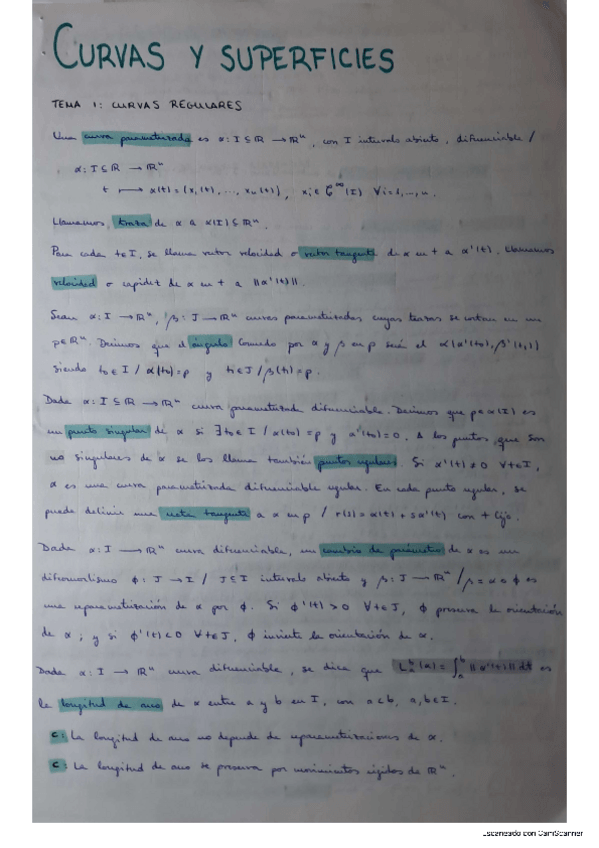 CURVAS Y SUPERFICIES
TEMA 1: CURVAS REGULARES
Una curva parametrizada es α: I ⊆ ℝ → ℝⁿ, con I intervalo abierto, diferenciable /
α: I ⊆ ℝ → ℝⁿ
t ⟼ α(t) = (x₁(t), ..., xₙ(t)), xᵢ ∈ C^∞(I) ∀i=1,...,n.
Llamamos traza de α a α(I) ⊆ ℝⁿ.
Para cada t∈I, se llama vector velocidad o vector tangente de α en t a α'(t). Llamamos
velocidad o rapidez de α en t a ||α'(t)||.
Sean α: I → ℝⁿ, β: J → ℝⁿ curvas parametrizadas cuyas trazas se cortan en un
p∈ℝⁿ. Decimos que el ángulo formado por α y β en p será el ∡(α'(t₀), β'(t₁))
siendo t₀∈I / α(t₀)=p y t₁∈J / β(t₁)=p.
Dada α: I ⊆ ℝ → ℝⁿ curva parametrizada diferenciable. Decimos que p∈α(I) es
un punto singular de α si ∃t₀∈I / α(t₀)=p y α'(t₀)=0. A los puntos que son
no singulares de α se los llama también puntos regulares. Si α'(t)≠0 ∀t∈I,
α es una curva parametrizada diferenciable regular. En cada punto regular, se
puede definir una recta tangente a α en p / r(s)=α(t)+sα'(t) con t fijo.
Dada α: I → ℝⁿ curva diferenciable, un cambio de parámetro de α es un
difeomorfismo ϕ: J → I / J⊆I intervalo abierto y β: J → ℝⁿ / β=α∘ϕ es
una reparametrización de α por ϕ. Si ϕ'(t)>0 ∀t∈J, ϕ preserva la orientación
de α; y si ϕ'(t)<0 ∀t∈J, ϕ invierte la orientación de α.
Dada α: I → ℝⁿ curva diferenciable, se dice que Lₐᵇ(α) = ∫ₐᵇ ||α'(t)|| dt es
la longitud de arco de α entre a y b en I, con a<b, a,b∈I.
C: La longitud de arco no depende de reparametrizaciones de α.
C: La longitud de arco se preserva por movimientos rígidos de ℝⁿ.
Escaneado con CamScanner